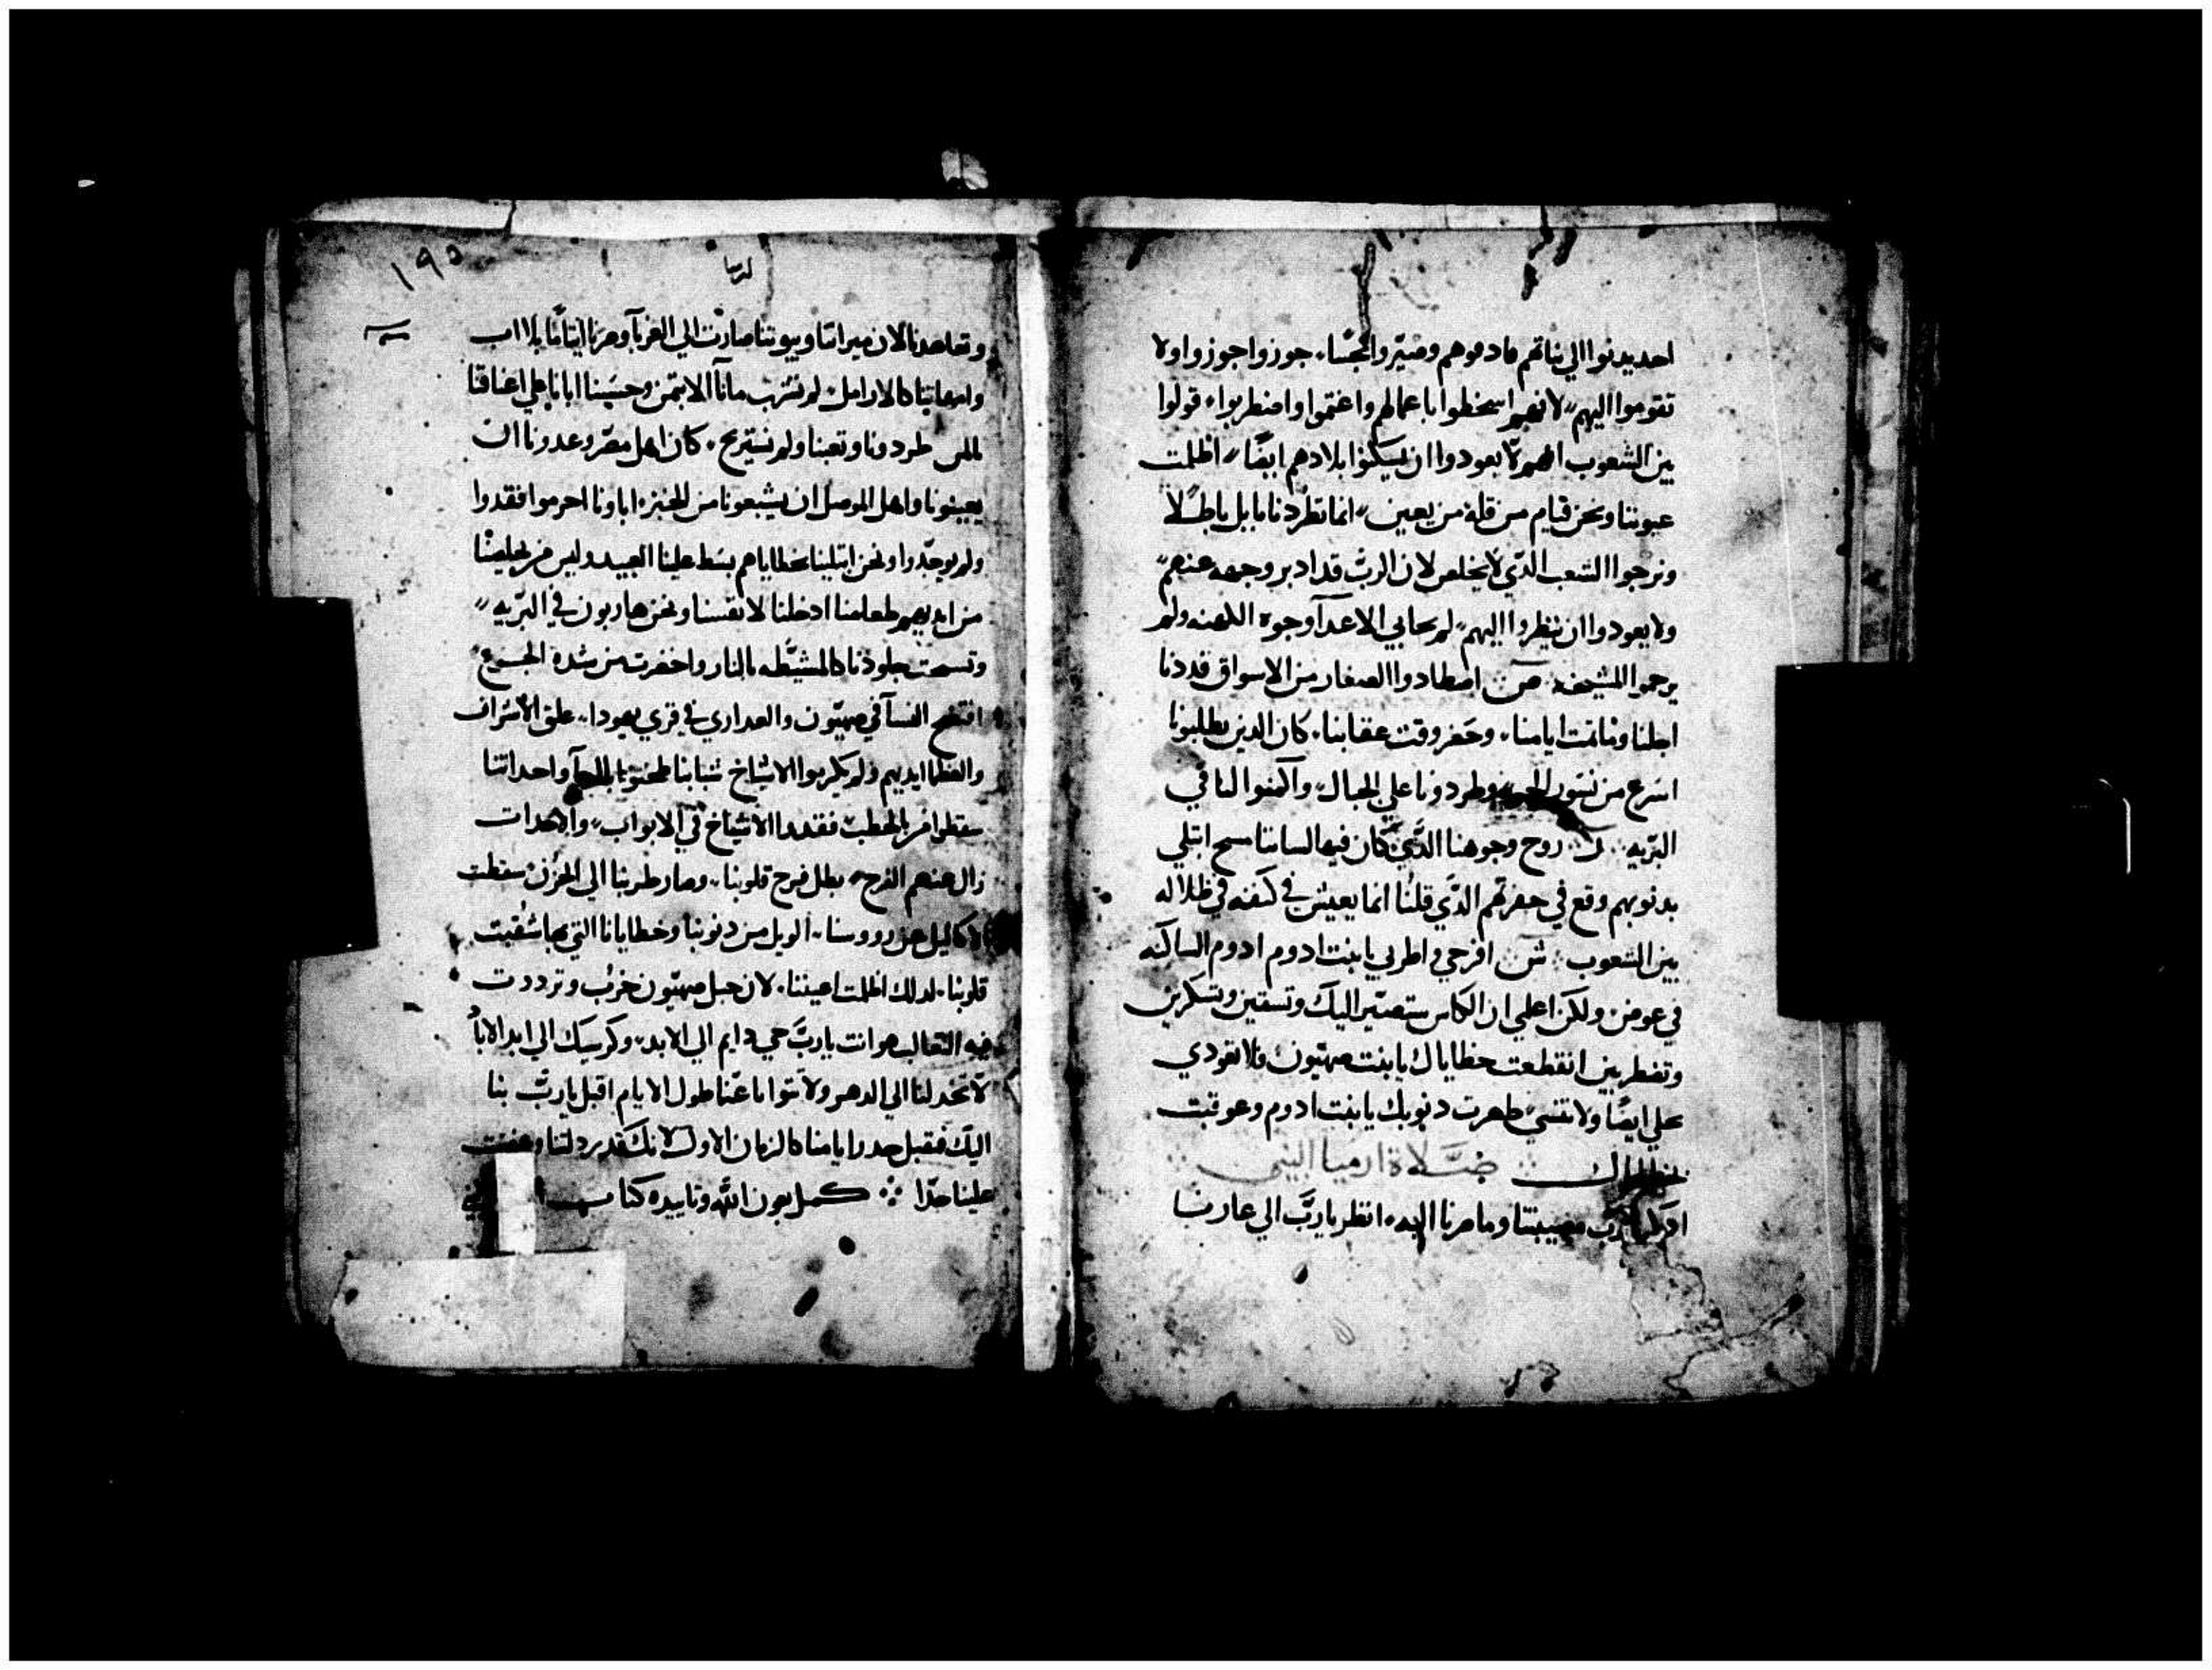 احد يدنوا الي بناتهم فادموهم وصيروا نجسا، جوزوا جوزوا ولا
تقوموا اليهم لانهم اسخطوا باعمالهم واغتموا واضطربوا، قولوا
بين الشعوب انهم لا يعودوا ان يسكنوا بلادهم ايضًا اظلمت
عيوننا ونحن قيام من قلة من يعين، انما تطردنا بابل باطلًا
ونرجوا الشعب الذي لا يخلص لان الرب قد ادبر وجهه عنهم
ولا يعودوا ان ينظروا اليهم لم يحابي الاعدآ وجوه الكهنه ولم
يرحموا المشيخه ص اصطادوا الصغار من الاسواق قد دنا
اجلنا وتمت ايامنا، وحضر وقت عقابنا، كان الذين يطلبونا
اسرع من نسور وطردونا علي الجبال، واكمنوا لنا في
البريه ق روح وجوهنا الذي كان فيها لساننا مسح ابتلي
بدنوبهم وقع في حفرتهم الذي قلنا انما يعيش في كنفه في ظلاله
بين الشعوب ش افرحي واطربي يا بنت ادوم ادوم الساكنه
في عوض ولكن اعلمي ان الكاس ستصير اليك وتسقين وتسكرين
وتضطربين انقطعت خطاياك يا بنت صهيون فلا تعودي
علي ايضًا ولا تنسي طهرت دنوبك يا بنت ادوم وعوقبت
بخطاياك صَلاة ارميا النبي
اذكر يا رب مصيبتنا وما صرنا اليه انظر يا رب الي عارنا
١٩٥
ارميا
وتعاهدنا لان ميراتنا وبيوتنا صارت الي الغربآ وصرنا ايتامًا بلا اب
وامهاتنا كالارامل لم نشرب مآنا الا بثمن وحسبنا ابانا علي اعناقنا
طردونا وتعبنا ولم نستريح، كان اهل مصر وعدونا ان
يعينونا واهل الموصل ان يشبعونا من الخبز، اباونا اجرموا فقدوا
ولم يوجدوا ونحن ابتلينا بخطاياهم بسط علينا العبيد وليس من يخلصنا
من ايديهم طعامنا ادخلنا لانفسنا ونحن هاربون في البريه
جلودنا بالنار واخضرت من شدة الجوع
افتضح النسآ في صهيون والعداري في قري يهودا، علق الاشراف
والعظما ايديهم ولم يكرموا الاشياخ شبابنا طحنوا بالرحآ واحداثنا
سقطوا بالحطب فقددا الاشياخ في الابواب، والاحدات
زال عنهم الفرح، بطل فرح قلوبنا، وصار طربنا الي الحزن سقطت
الاكاليل من رووسنا، الويل من دنوبنا وخطايانا التي بها شقبت
قلوبنا، لدلك اظلمت اعيننا، لان جبل صهيون خرب وترددت
فيه الثعالب، وانت يا رب حي دايم الي الابد، وكرسيك الي ابد الاباد
لا تخدلنا الي الدهر ولا تتوانا عنا طول الايام اقبل يا رب بنا
اليك فنقبل جدد ايامنا كالزمان الاول لانك قد رددلتنا وغضبت
علينا جدًا كمل بعون الله وتاييده كتاب